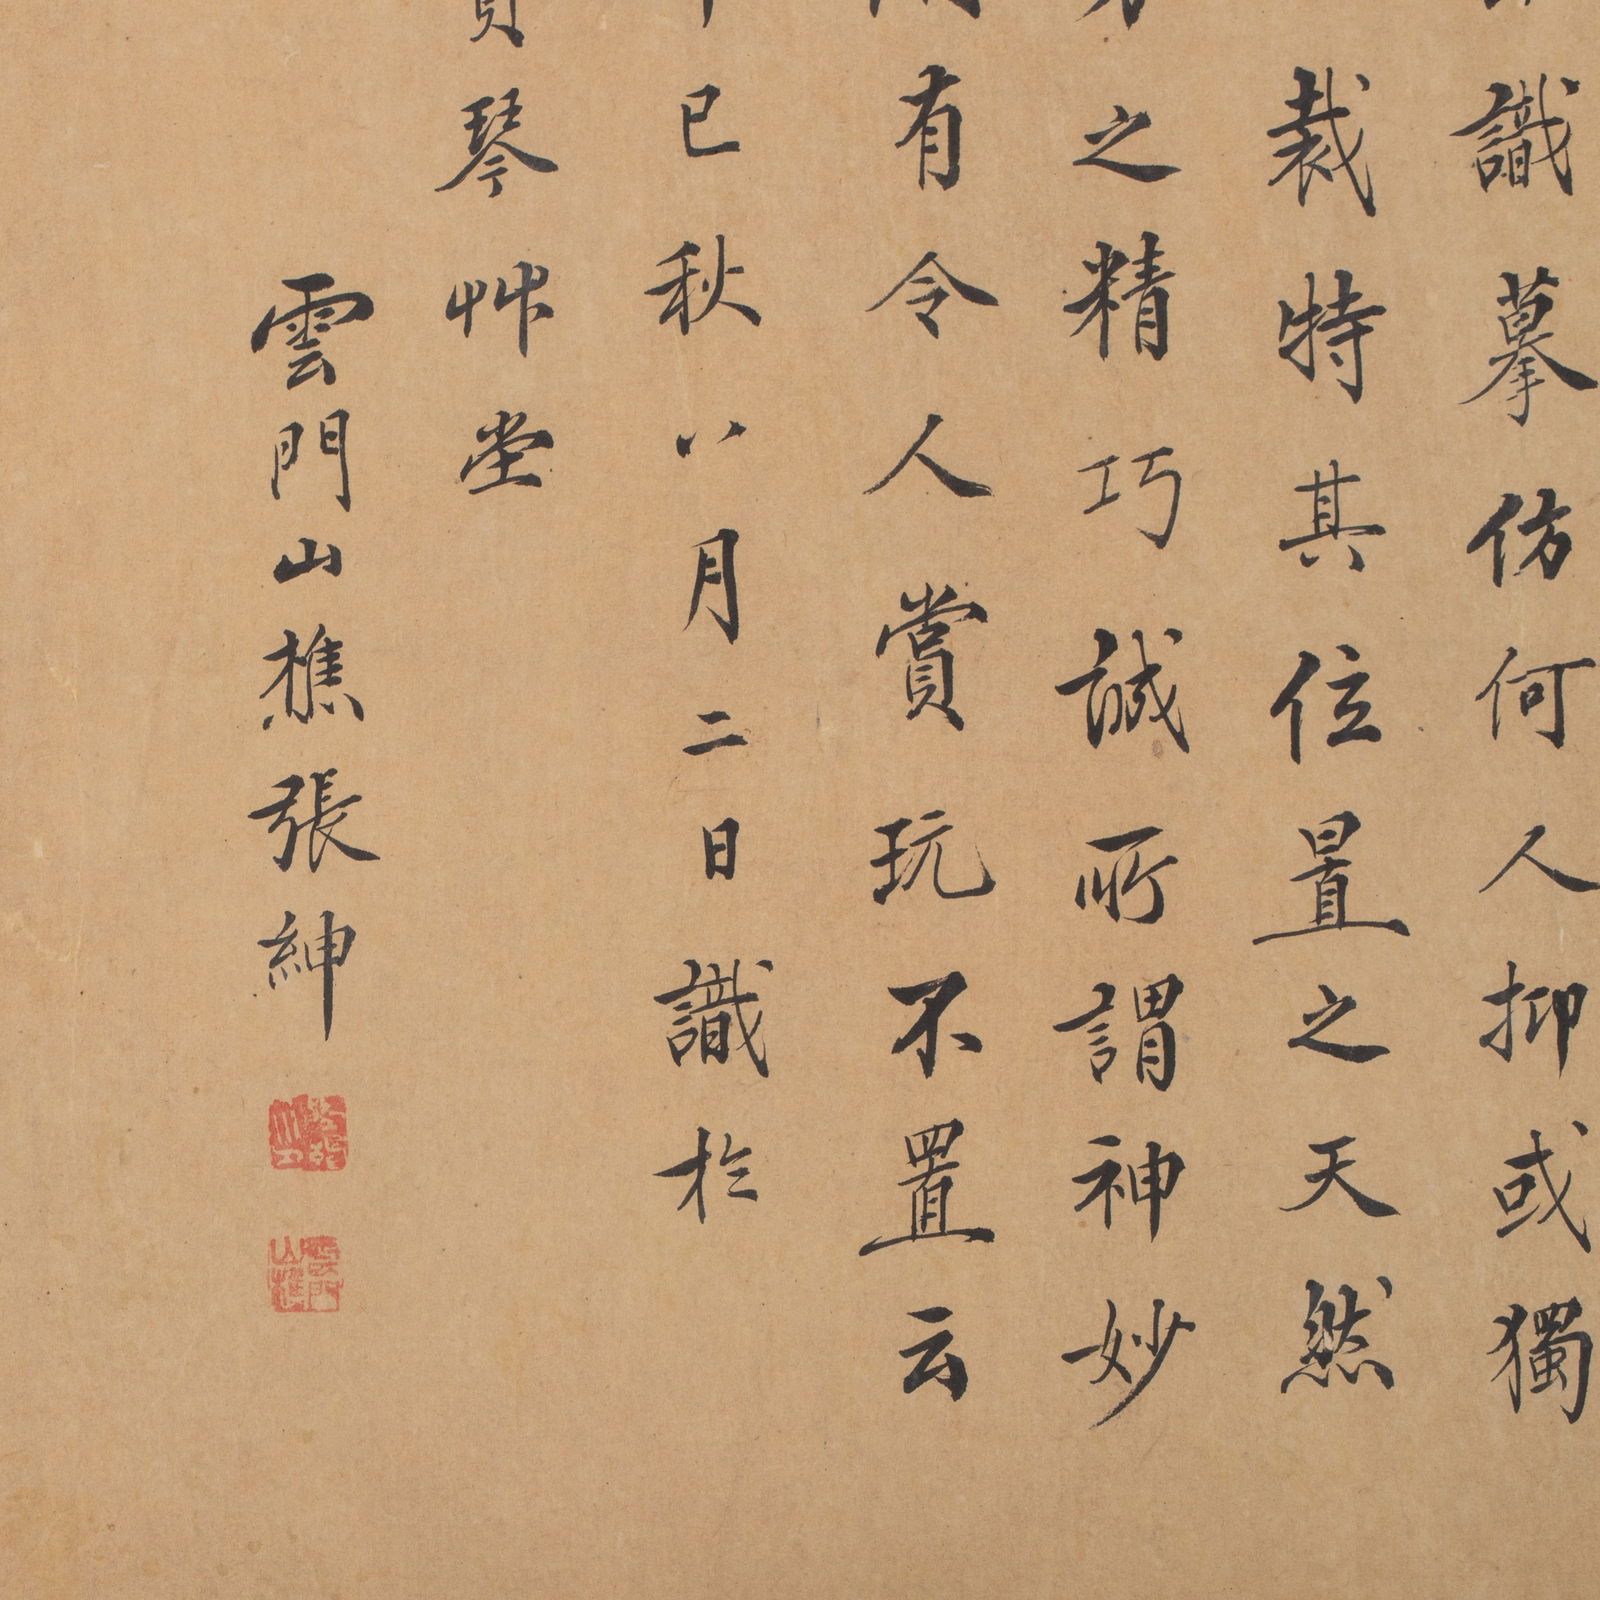 識摹仿何人抑或獨
裁特其位置之天然
之精巧誠所謂神妙
有令人賞玩不置云
巳秋八月二日識於
琴艸堂
雲門山樵張紳
雲門山樵